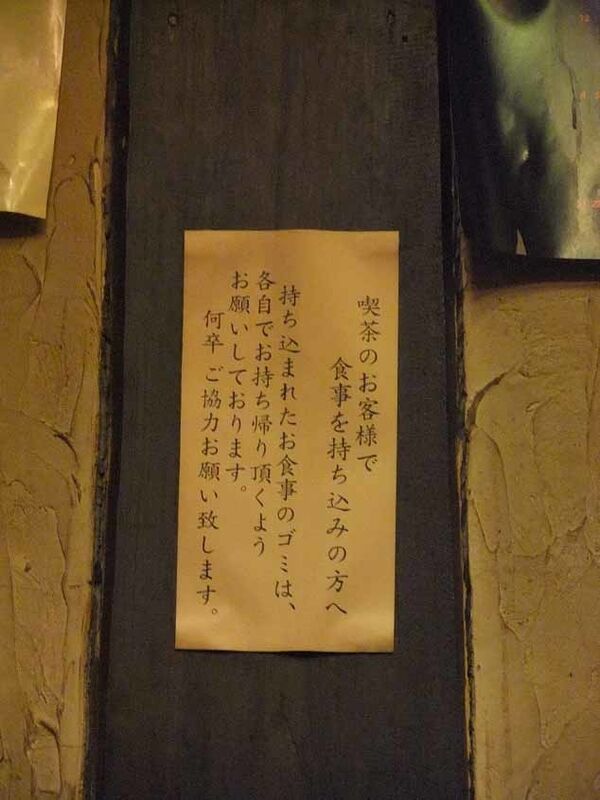 喫茶のお客様で
食事を持ち込みの方へ
持ち込まれたお食事のゴミは、
各自でお持ち帰り頂くよう
お願いしております。
何卒 ご協力お願い致します。
12